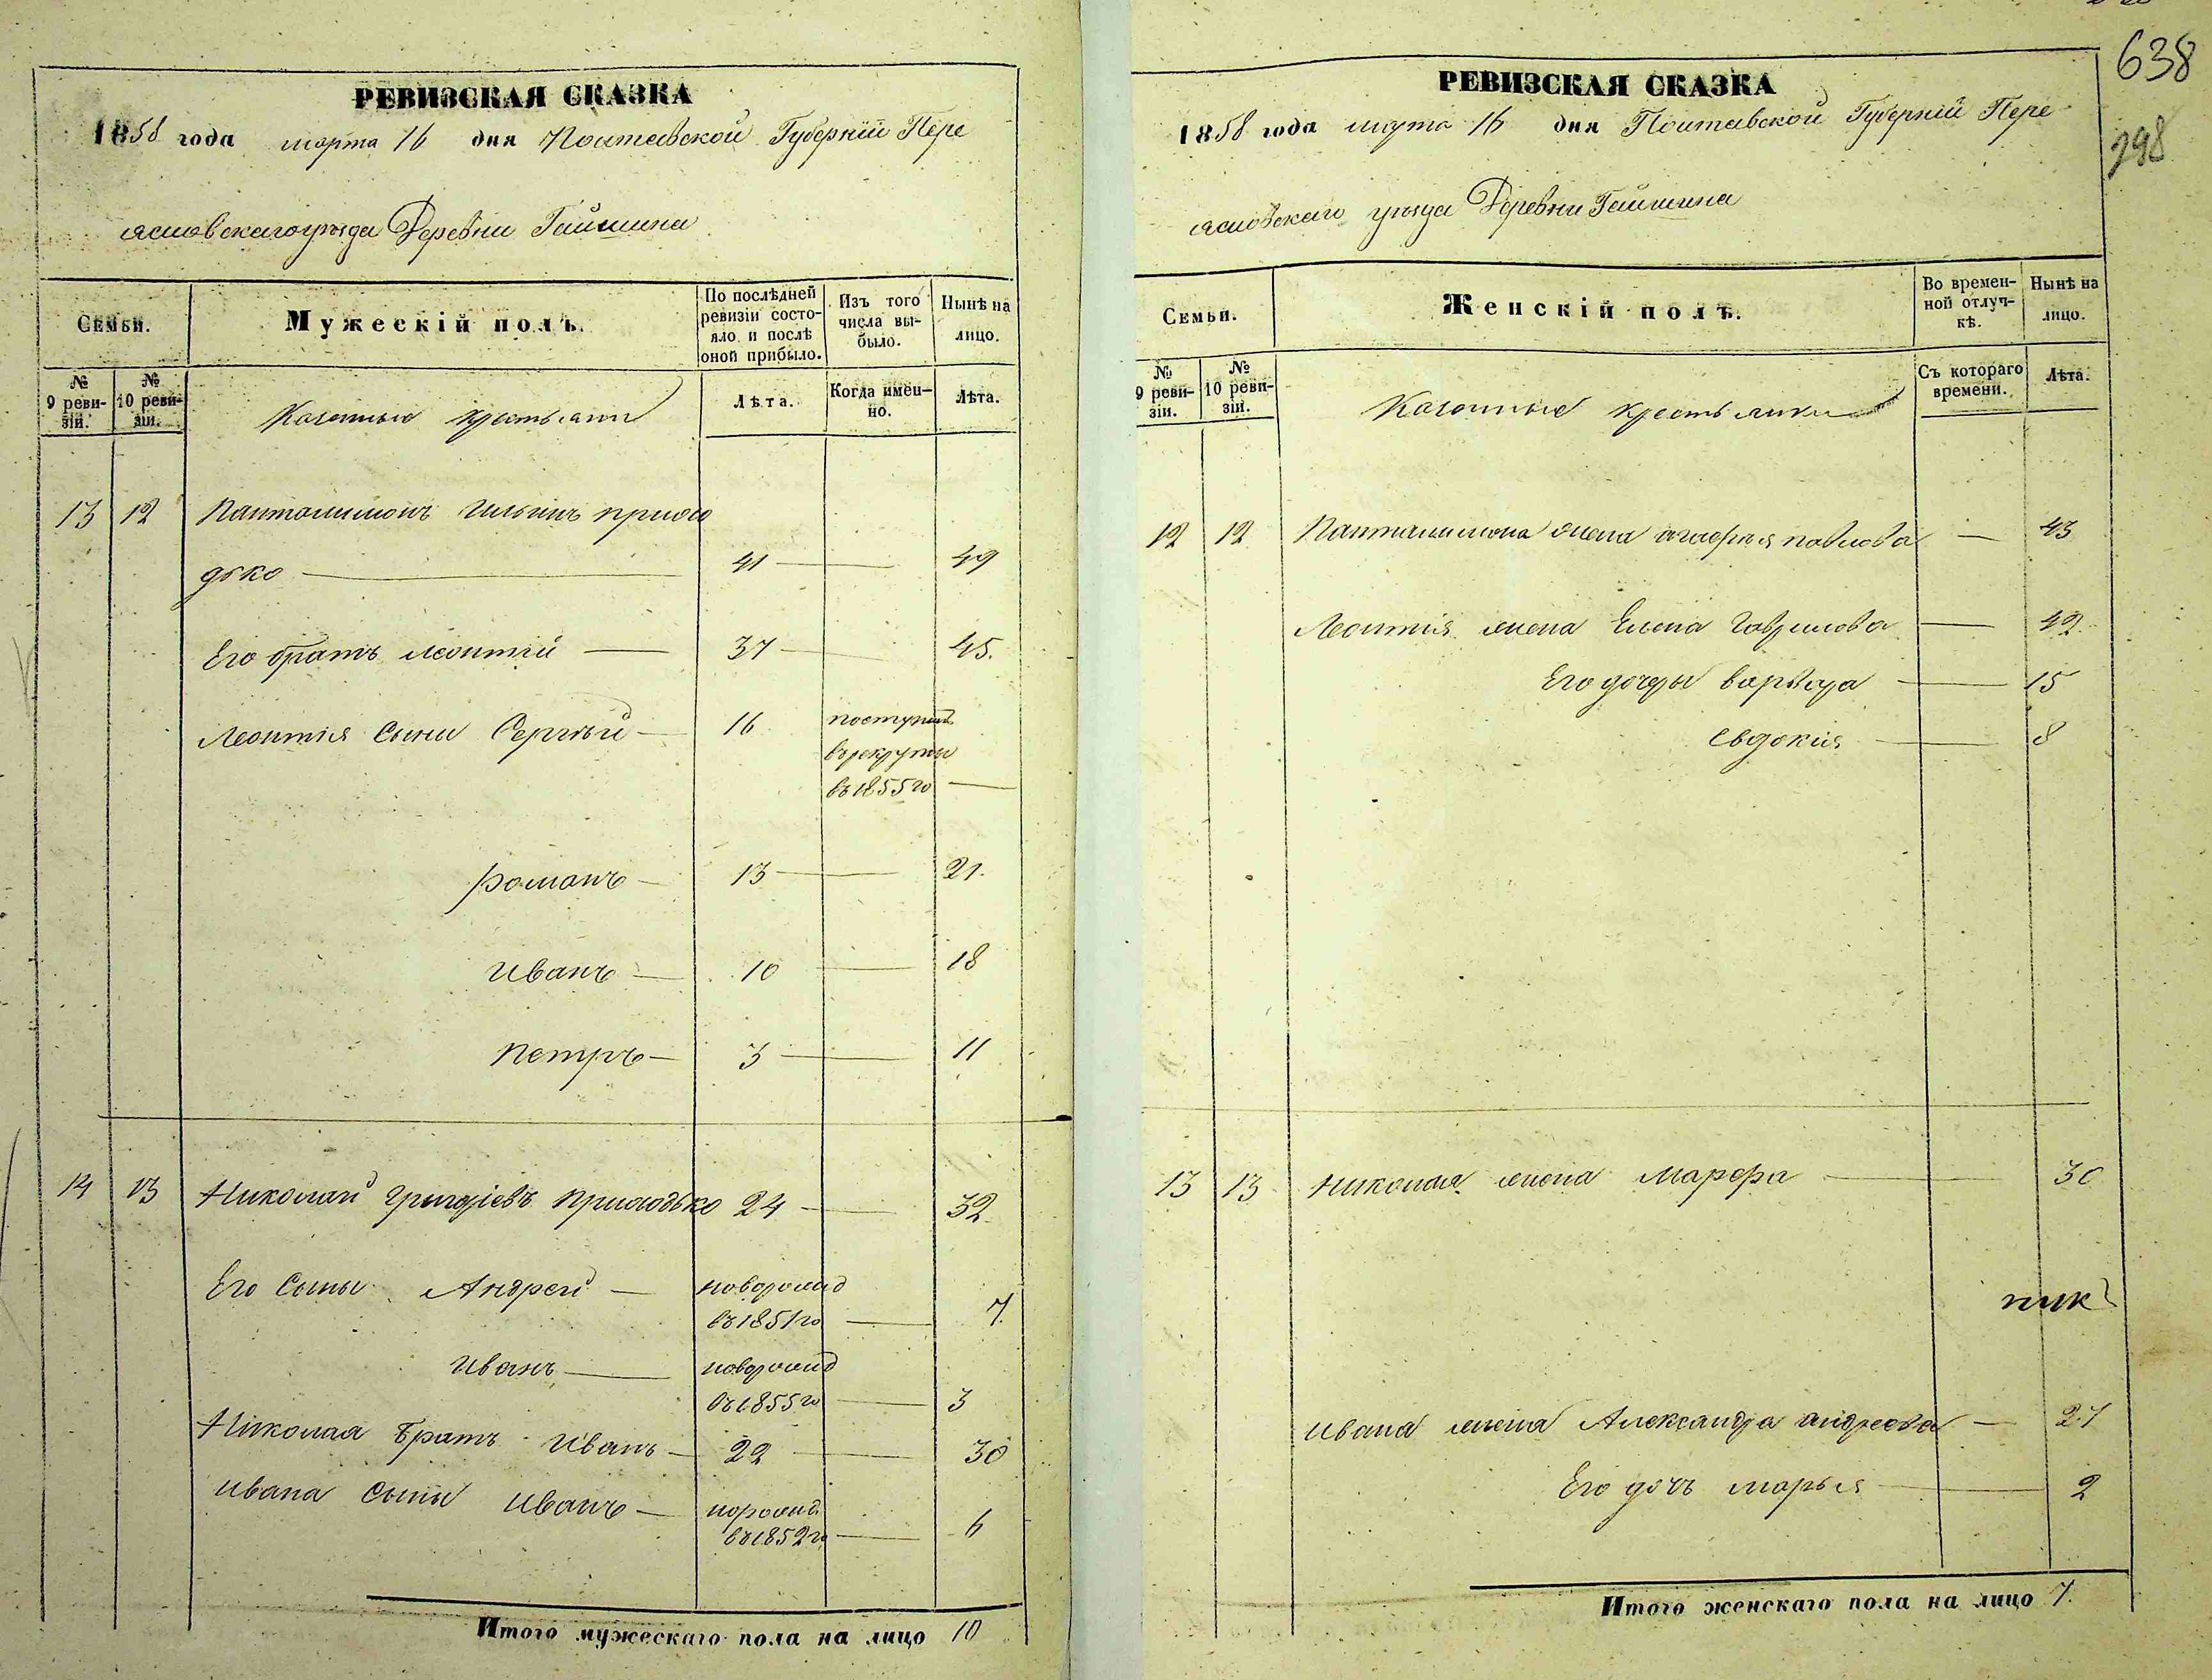 638
298
РЕВИЗСКАЯ СКАЗКА
1858 года марта 16 дня Полтавской Губерніи Пере
яславскаго уѣзда Деревни Гайшина
Семьи.
Мужескій полъ.
По послѣдней ревизіи состояло и послѣ оной прибыло.
Изъ того числа выбыло.
Нынѣ на лицо.
№ 9 ревизіи.
№ 10 ревизіи.
Казенные крестьяни
Лѣта.
Когда именно.
Лѣта.
13 12 Панталимонъ Ильинъ прихо
дько — 41 — 49
Его братъ леонтій — 37 — 45.
Леонтія сыны Сергѣй — 16 поступилъ
въ рекруты
въ 1855 го —
романъ — 13 — 21.
иванъ — 10 — 18
петръ — 3 — 11
14 13 Николай григоріевъ приходько 24 — 32.
Его сыны Андрей — новорожд
въ 1851 го — 7.
иванъ — новорожд
въ 1855 го — 3
Николая братъ иванъ — 22 — 30
ивана сыны иванъ —
въ 1852 го — 6
Итого мужескаго пола на лицо 10
РЕВИЗСКАЯ СКАЗКА
1858 года марта 16 дня Полтавской Губерніи Пере
яславскаго уѣзда Деревни Гайшина
Семьи.
Женскій полъ.
Во временной отлучкѣ.
Нынѣ на лицо.
№ 9 ревизіи.
№ 10 ревизіи.
Казенные крестьянки
Съ котораго времени.
Лѣта.
12 12 Панталимона жена агафья павлова — 43
Леонтія жена Елена Гаврилова — 42.
Его дочеры варвара — 15
евдокия — 8
13 13 николая жена марфа — 30
ивана жена Александра андреева — 27
Его дочъ марья — 2
Итого женскаго пола на лицо 7.